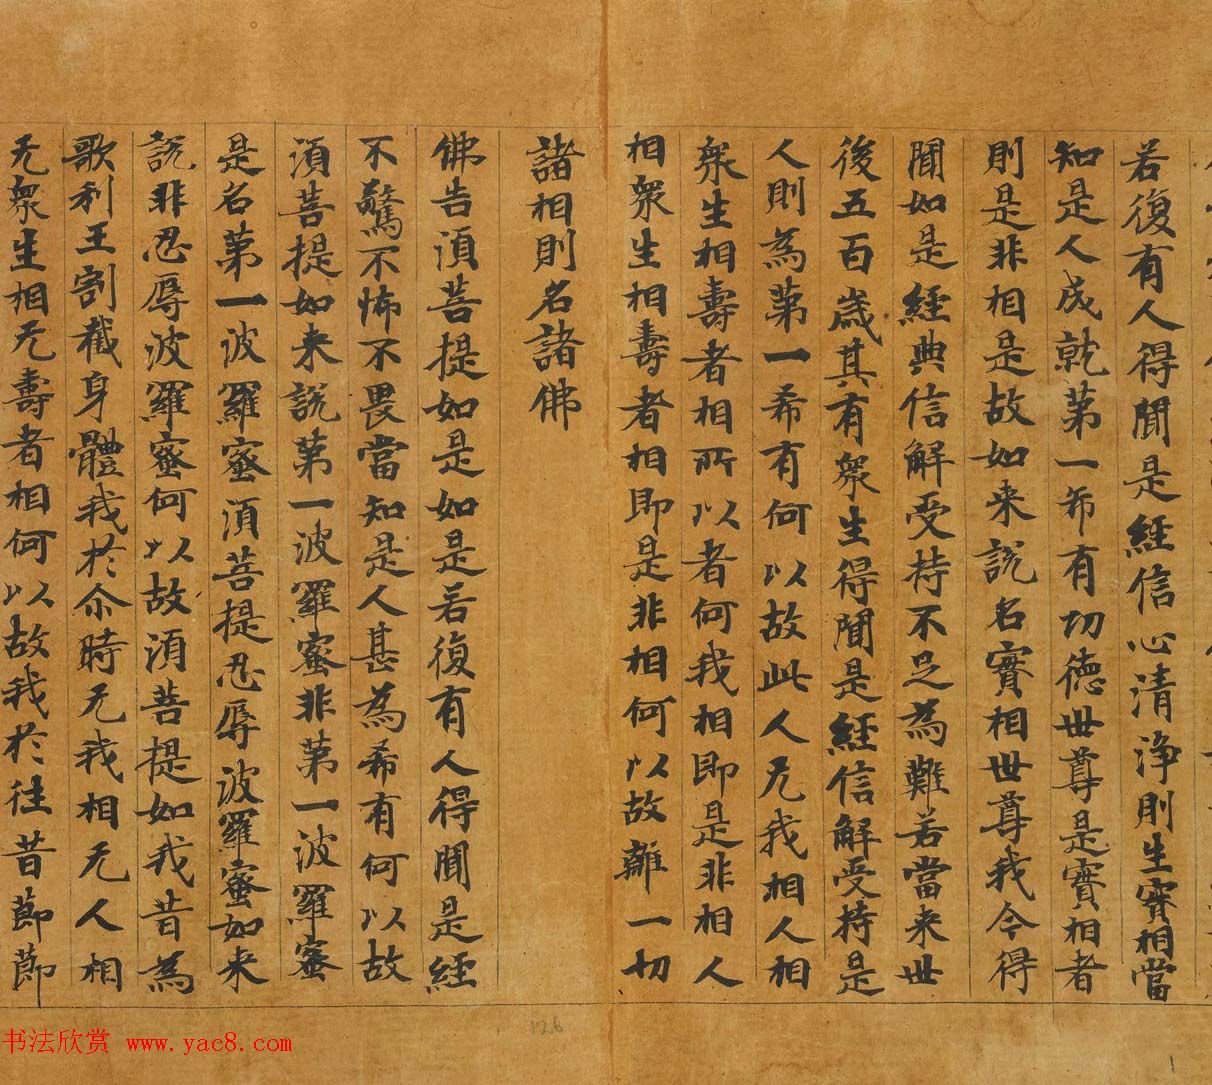 若復有人得聞是經信心清淨則生實相當
知是人成就第一希有切德世尊是實相者
則是非相是故如来説名實相世尊我今得
聞如是經典信解受持不足為難若當来世
後五百歲其有衆生得聞是經信解受持是
人則為第一希有何以故此人无我相人相
衆生相壽者相所以者何我相即是非相人
相衆生相壽者相即是非相何以故離一切
諸相則名諸佛
佛告須菩提如是如是若復有人得聞是經
不驚不怖不畏當知是人甚為希有何以故
須菩提如来説第一波羅蜜非第一波羅蜜
是名第一波羅蜜須菩提忍辱波羅蜜如来
説非忍辱波羅蜜何以故須菩提如我昔為
歌利王割截身體我於尒時无我相无人相
无衆生相无壽者相何以故我於往昔節節
126
1
书法欣赏 www.yac8.com